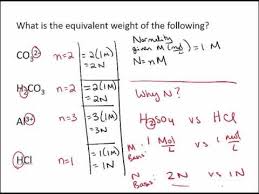 What is the equivalent weight of the following?
CO₃²⁻ n=2 = 2(1M) = 2N
H₂CO₃ n=2 = 2(1M) = 2N
Al³⁺ n=3 = 3(1M) = 3N
HCl n=1 = 1(1M) = 1N
Normality
given M (mol/L) = 1M
N = nM
Why N?
H₂SO₄ vs HCl
M Basis : 1 mol/L vs 1 mol/L
N Basis : 2N vs 1N